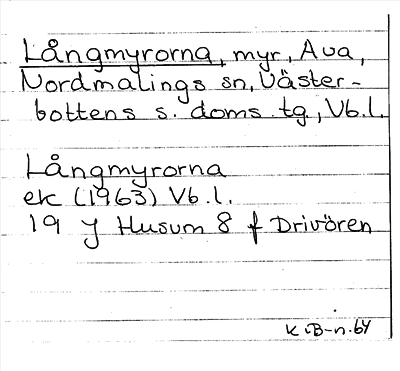 Långmyrorna, myr, Ava,
Nordmalings sn, Väster-
bottens s. doms. tg., Vb.l.
Långmyrorna
ek (1963) Vb.l.
19 J Husum 8 f Drivören
K.B-n. 64